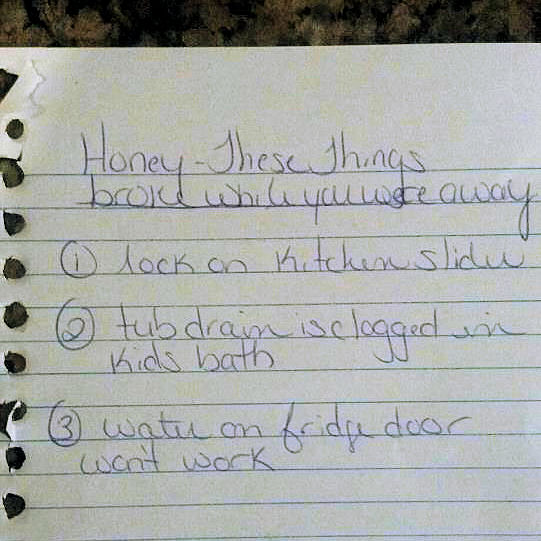 Honey - These Things
broke while you were away
① lock on kitchen slider
② tub drain is clogged in
kids bath
③ water on fridge door
won't work